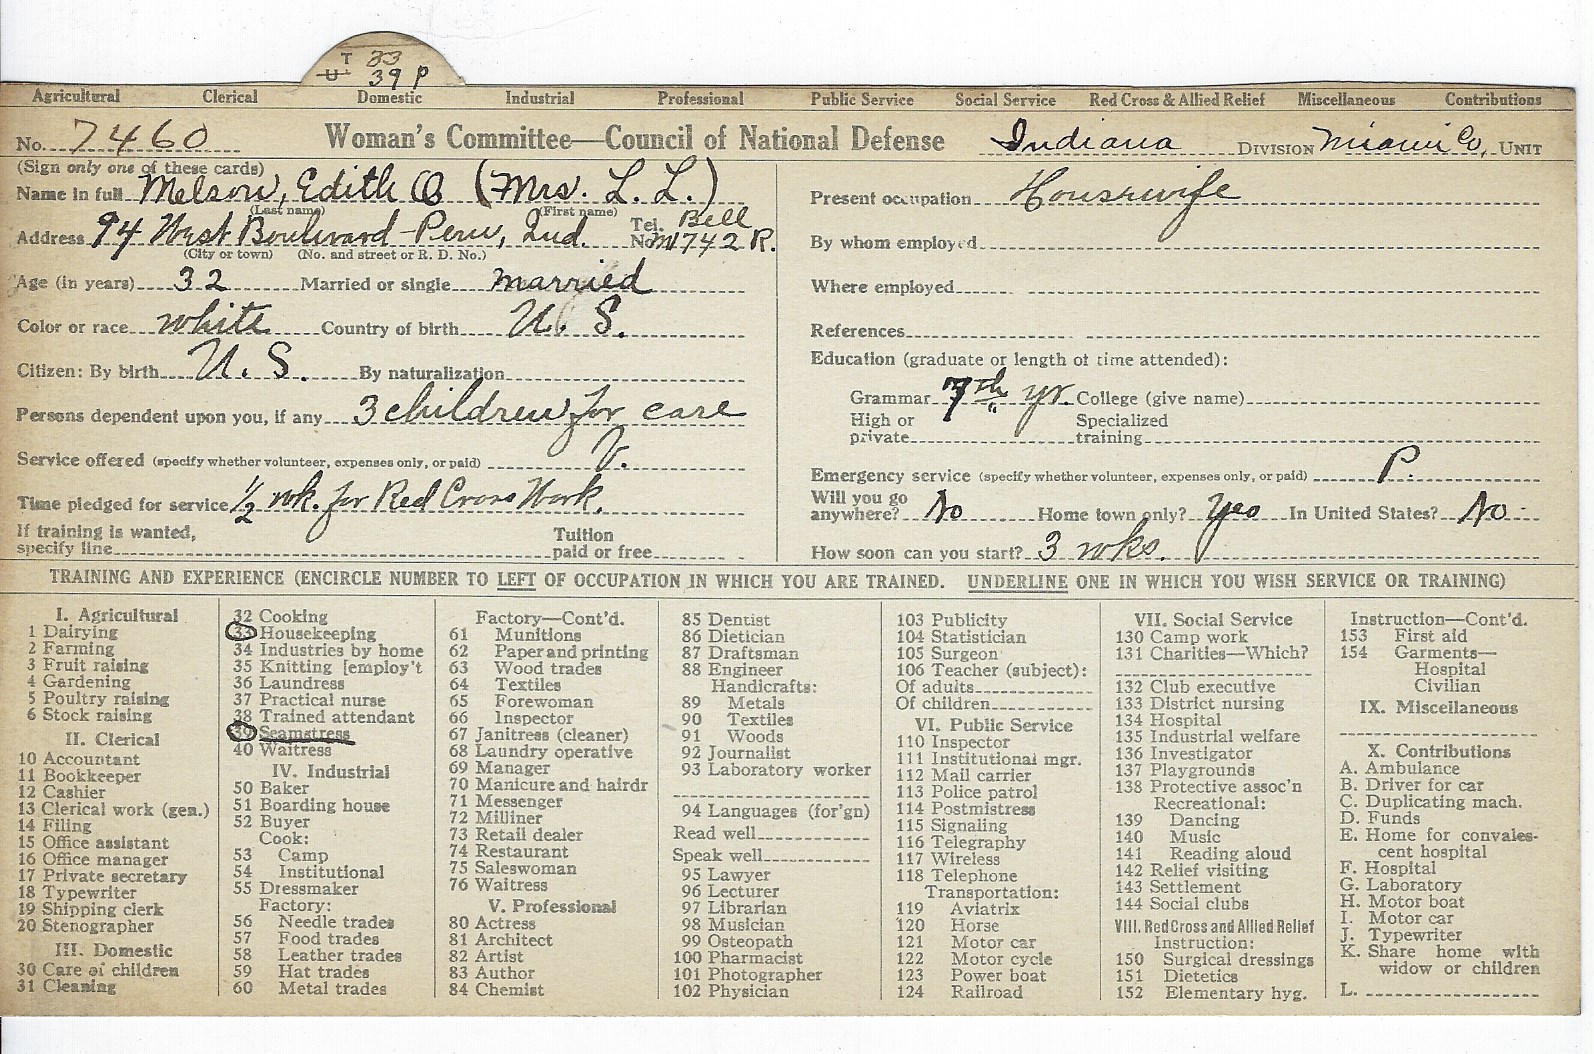 T 33
U 39 P
Agricultural Clerical Domestic Industrial Professional Public Service Social Service Red Cross & Allied Relief Miscellaneous Contributions
No. 7460 Woman's Committee—Council of National Defense Indiana DIVISION Miami Co. UNIT
(Sign only one of these cards)
Name in full Melson, Edith O (Mrs. L. L.)
(Last name) (First name)
Address 94 West Boulevard Peru, Ind. Tel. No. Bell M1742 R.
(City or town) (No. and street or R. D. No.)
Age (in years) 32 Married or single married
Color or race white Country of birth U. S.
Citizen: By birth U. S. By naturalization
Persons dependent upon you, if any 3 children for care
Service offered (specify whether volunteer, expenses only, or paid) V.
Time pledged for service 1/2 wk. for Red Cross Work.
If training is wanted,
specify line Tuition
paid or free
Present occupation Housewife
By whom employed
Where employed
References
Education (graduate or length of time attended):
Grammar 7th yr. College (give name)
High or
private Specialized
training
Emergency service (specify whether volunteer, expenses only, or paid) P.
Will you go
anywhere? No Home town only? Yes In United States? No
How soon can you start? 3 wks.
TRAINING AND EXPERIENCE (ENCIRCLE NUMBER TO LEFT OF OCCUPATION IN WHICH YOU ARE TRAINED. UNDERLINE ONE IN WHICH YOU WISH SERVICE OR TRAINING)
I. Agricultural
1 Dairying
2 Farming
3 Fruit raising
4 Gardening
5 Poultry raising
6 Stock raising
II. Clerical
10 Accountant
11 Bookkeeper
12 Cashier
13 Clerical work (gen.)
14 Filing
15 Office assistant
16 Office manager
17 Private secretary
18 Typewriter
19 Shipping clerk
20 Stenographer
III. Domestic
30 Care of children
31 Cleaning
32 Cooking
33 Housekeeping
34 Industries by home
35 Knitting [employ't
36 Laundress
37 Practical nurse
38 Trained attendant
39 Seamstress
40 Waitress
IV. Industrial
50 Baker
51 Boarding house
52 Buyer
Cook:
53 Camp
54 Institutional
55 Dressmaker
Factory:
56 Needle trades
57 Food trades
58 Leather trades
59 Hat trades
60 Metal trades
Factory—Cont'd.
61 Munitions
62 Paper and printing
63 Wood trades
64 Textiles
65 Forewoman
66 Inspector
67 Janitress (cleaner)
68 Laundry operative
69 Manager
70 Manicure and hairdr
71 Messenger
72 Milliner
73 Retail dealer
74 Restaurant
75 Saleswoman
76 Waitress
V. Professional
80 Actress
81 Architect
82 Artist
83 Author
84 Chemist
85 Dentist
86 Dietician
87 Draftsman
88 Engineer
Handicrafts:
89 Metals
90 Textiles
91 Woods
92 Journalist
93 Laboratory worker
94 Languages (for'gn)
Read well
Speak well
95 Lawyer
96 Lecturer
97 Librarian
98 Musician
99 Osteopath
100 Pharmacist
101 Photographer
102 Physician
103 Publicity
104 Statistician
105 Surgeon
106 Teacher (subject):
Of adults
Of children
VI. Public Service
110 Inspector
111 Institutional mgr.
112 Mail carrier
113 Police patrol
114 Postmistress
115 Signaling
116 Telegraphy
117 Wireless
118 Telephone
Transportation:
119 Aviatrix
120 Horse
121 Motor car
122 Motor cycle
123 Power boat
124 Railroad
VII. Social Service
130 Camp work
131 Charities—Which?
132 Club executive
133 District nursing
134 Hospital
135 Industrial welfare
136 Investigator
137 Playgrounds
138 Protective assoc'n
Recreational:
139 Dancing
140 Music
141 Reading aloud
142 Relief visiting
143 Settlement
144 Social clubs
VIII. Red Cross and Allied Relief
Instruction:
150 Surgical dressings
151 Dietetics
152 Elementary hyg.
Instruction—Cont'd.
153 First aid
154 Garments—
Hospital
Civilian
IX. Miscellaneous
X. Contributions
A. Ambulance
B. Driver for car
C. Duplicating mach.
D. Funds
E. Home for convales-
cent hospital
F. Hospital
G. Laboratory
H. Motor boat
I. Motor car
J. Typewriter
K. Share home with
widow or children
L.